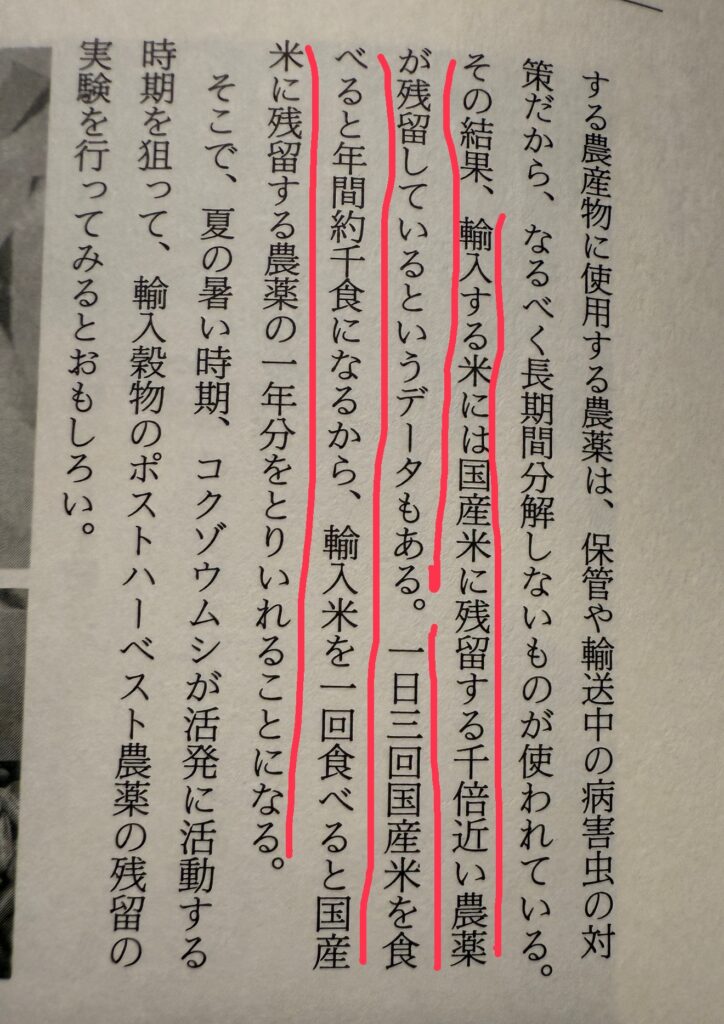 する農産物に使用する農薬は、保管や輸送中の病害虫の対
策だから、なるべく長期間分解しないものが使われている。
その結果、輸入する米には国産米に残留する千倍近い農薬
が残留しているというデータもある。一日三回国産米を食
べると年間約千食になるから、輸入米を一回食べると国産
米に残留する農薬の一年分をとりいれることになる。
そこで、夏の暑い時期、コクゾウムシが活発に活動する
時期を狙って、輸入穀物のポストハーベスト農薬の残留の
実験を行ってみるとおもしろい。